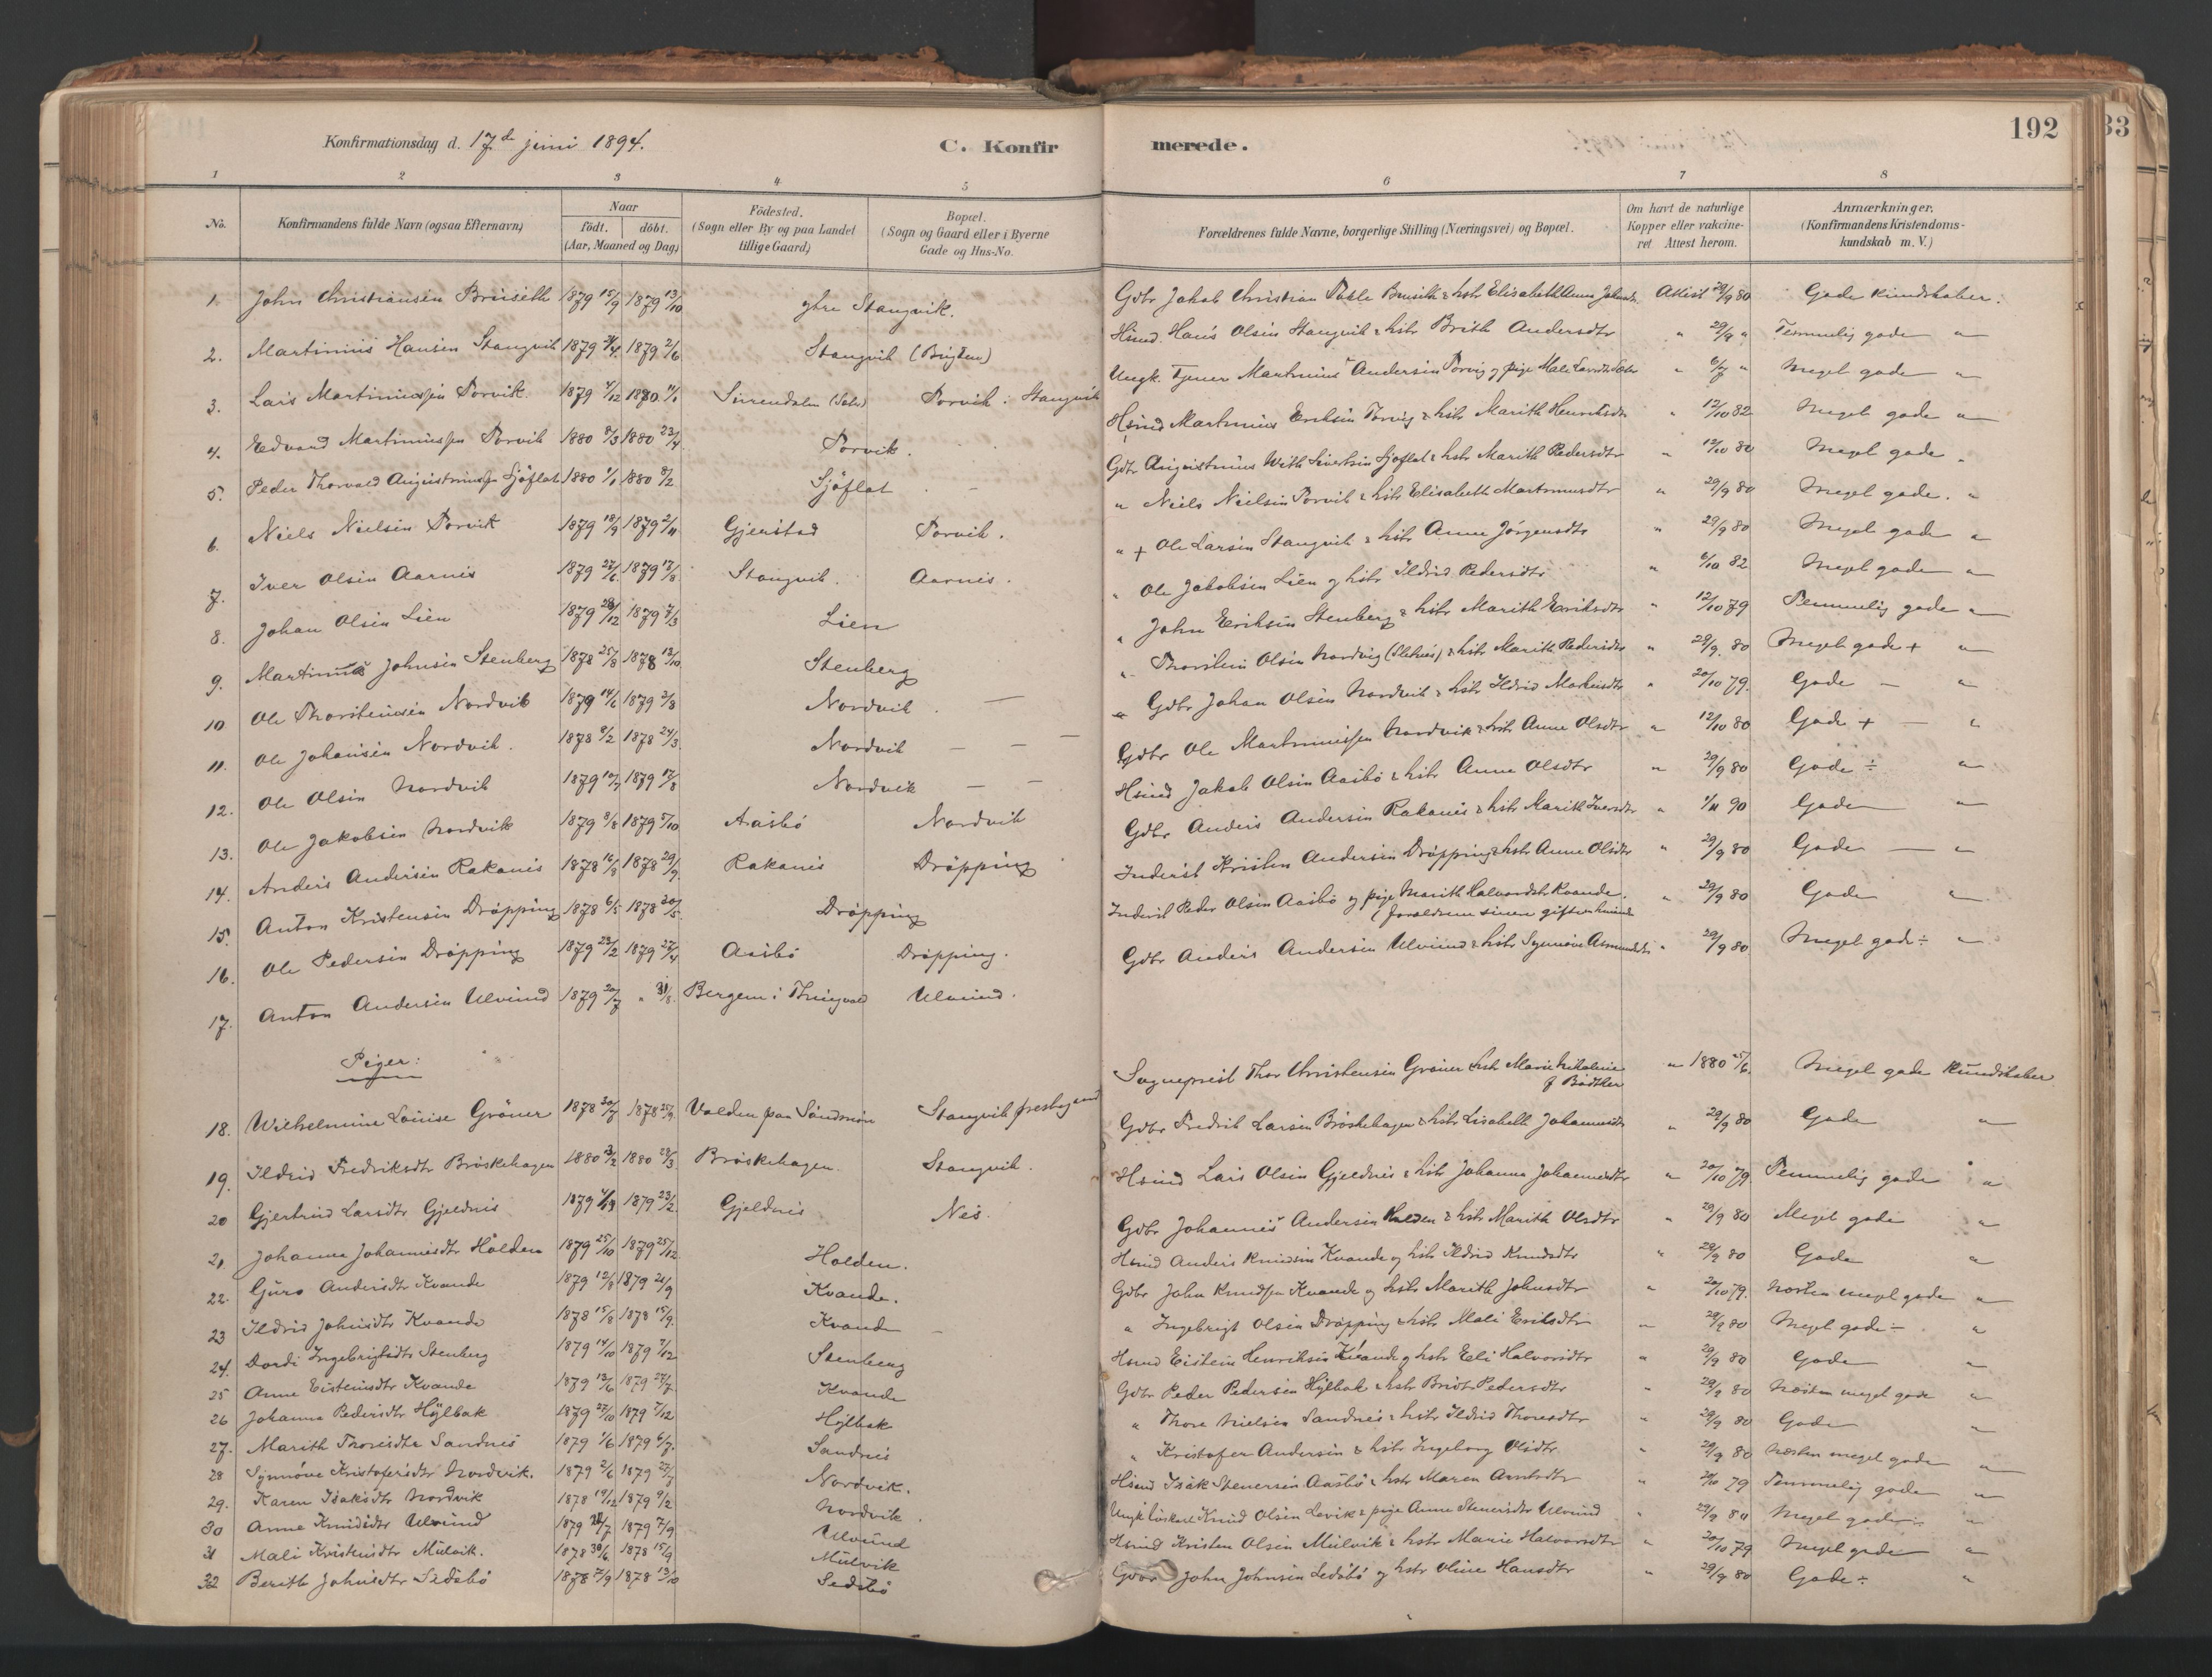 Konfirmationsdag d. 17de juni 1894.
C. Konfirmerede.
192
33
1 2 3 4 5 6 7 8
No. Konfirmandens fulde Navn (ogsaa Efternavn) Naar födt. döbt. (Aar, Maaned og Dag) Födested. (Sogn eller By og paa Landet tillige Gaard) Bopæl. (Sogn og Gaard eller i Byerne Gade og Hus-No. Forældrenes fulde Navne, borgerlige Stilling (Næringsvei) og Bopæl. Om havt de naturlige Kopper eller vakcineret Attest herom. Anmærkninger. (Konfirmandens Kristendomskundskab m. V.)
1. John Christiansen Brüseth 1879 15/9 1879 13/10 ytre Stangvik. Gdbr Jakob Christian Brusethr & hstr Elisabeth Anna Attest 29/9 80 Gode Kundskaber.
2. Martinus Hansen Stangvik 1879 1879 2/6 Stangvik Hsmd. Hans Olsen Stangvik & hstr Brith Andersdtr " 29/9 " Temmelig gode "
3. Lars Martinussen Torvik. 1879 4/12 1880 11/1 Surendalen Torvik i Stangvik Ungk. Tjener Martinus Andersen Torvig og pige Mali " 6/7 " Meget gode "
4. Edvard Martinussen Torvik 1880 8/3 1880 23/4 Torvik. Hsmd Martinus Eriksen Torvig & hstr Marith Henriksdtr " 12/10 82 Meget gode "
5. Peder Thorvald Augustinussen Sjöflot 1880 1/1 1880 8/2 Sjöflot Gdbr Augustinus With Sivertsen Sjöflot & hstr Marith Pedersdtr " 12/10 80 Meget gode "
6. Niels Nielsen Torvik 1879 18/9 1879 2/11 Gjerstad Torvik. " Niels Nielsen Torvik & hstr Elisabeth Martinusdtr " 29/9 80 Meget gode. "
7. Iver Olsen Aarnes 1879 27/6 1879 17/8 Stangvik. Aarnes. " + Ole Larsen Stangvik & hstr Anne Jörgensdtr " 29/9 80 Meget gode "
8. Johan Olsen Lien 1879 28/12 1879 7/3 Lien " Ole Jakobsen Lien og hstr Ildrid Pedersdtr " 6/10 82 Meget gode "
9. Martinus Johnsen Stenberg 1878 25/8 1878 13/10 Stenberg " John Eriksen Stenberg & hstr Marith Eriksdtr " 12/10 79 Temmelig gode "
10 Ole Thorstensen Nordvik 1879 14/6 1879 3/8 Nordvik. " Thorstein Olsen Nordvig & hstr Marith Pedersdtr " 29/9 80 Meget gode + "
11. Ole Johansen Nordvik. 1878 9/2 1878 24/3 Nordvik " Gdbr Johan Olsen Nordvik & hstr Ildrid " 20/10 79. Gode — "
12. Ole Olsen Nordvik 1879 10/7 1879 17/8 Nordvik Gdbr Ole Martinussen Nordvik & hstr Anne Olsdtr " 12/10 80 Gode + — "
13. Ole Jakobsen Nordvik 1879 8/8 1879 5/10 Aasbö Nordvik Hsmd Jakob Olsen Aasbö & hstr Anne Olsdtr " 29/9 80 Gode ÷ "
14. Anders Andersen Rakanes 1878 16/8 1878 29/9 Rakanes Dröpping Gdbr Anders Andersen Rakanes & hstr Marith Iversdtr " 1/11 90 Gode "
15. Anton Kristensen Dröpping 1878 6/5 1878 30/5 Dröpping Inderst Kristen Andersen Dröpping & hstr Anne Olsdtr " 29/9 80 Gode — "
16. Ole Pedersen Dröpping 1879 23/2 1879 27/4 Aasbö Dröpping. Inderst Peder Olsen Aasbö og pige Marith Halvorsdtr Kvande. (Forældrene senere gift) " 29/9 80 Gode "
17. Anton Andersen Ulvund 1879 20/7 " 31/8. Bergem i Thingvold Ulvund. Gdbr Anders Andersen Ulvund & hstr Synnöve Asmundsdtr " 29/9 80 Meget gode ÷ "
Piger:
18. Wilhelmine Louise Gröner 1878 30/7 1878 25/9 Volden paa Söndmör Stangvik prestegaard Sogneprest Thor Christensen Gröner & hstr Marie f Bödtker " 1880 25/6. Meget gode Kundskaber
19. Ildrid Fredriksdtr Bröskehagen 1880 1880 28/3 Bröskehagen. Stangvik. Gdbr Fredrik Larsen Bröskehagen & hstr Lisabeth Johannesdtr " 29/9 80 Gode "
20 Gjertrud Larsdtr Gjeldnes 1879 1879 23/2. Gjeldnes Nes. Hsmd Lars Olsen Gjeldnes & hstr Johanna Johannesdtr " 20/10 79. Temmelig gode "
21. Johanna Johannesdtr Holden 1879 25/10 1879 25/12 Holden. Gdbr Johannes Andersen Holden & hstr Marith Olsdtr " 29/9 80 Meget gode "
22. Guro Andersdtr Kvande 1879 12/8 1879 21/9 Kvande. Hsmd Anders Knudsen Kvande og hstr Ildrid Knudsdtr " 29/9 80 Gode "
23 Ildrid Johnsdtr Kvande 1878 15/8 1878 15/9. Kvande Gdbr John Knudsen Kvande og hstr Marith Johnsdtr " 20/10 79. Næsten meget gode "
24. Dordi Ingebrigtsdtr Stenberg 1879 14/10 1879 7/12 Stenberg " Ingebrigt Olsen Dröpping & hstr Mali Eriksdtr " 29/9 80 Meget gode ÷ "
25 Anne Eistensdtr Kvande 1879 13/6 1879 27/7 Kvande Hsmd Eistein Henriksen Kvande og hstr Eli Halvorsdtr " 29/9 80 Gode "
26 Johanna Pedersdtr Höjlbak 1879 27/10 1879 7/12 Höjlbak Gdbr Peder Pedersen Höjlbak & hstr Pedersdtr " 29/9 80 Næsten meget gode "
27. Marith Thoresdtr Sandnes 1879 1/6 1879 6/7. Sandnes " Thore Nielsen Sandnes & hstr Ildrid Thoresdtr " 29/9 80 Gode "
28 Synnöve Kristofersdtr Nordvik. 1879 2/6 1879 27/7 Nordvik. " Kristofer Andersen & hstr Ingeborg Olsdtr " 29/9 80 Næsten meget gode "
29. Karen Isaksdtr Nordvik 1878 19/12 1879 9/2 Nordvik. Hsmd Isak Stenersen Aasbö & hstr Maren " 20/10 79 Temmelig gode "
30 Anne Knudsdtr Ulvund 1879 1879 7/9 Ulvund Ungk Knud Olsen & pige Anne Stenersdtr Ulvund " 29/9 80 Meget gode "
31 Mali Kristensdtr Mulvik. 1878 30/6. 1878 15/9 Mulvik Hsmd Kristen Olsen Mulvik & hstr Marie Halvorsdtr " 20/10 79 Meget gode "
32 Berith Johnsdtr Sedsbö 1878 7/9 1878 13/10 Sedsbö Gdbr John Johnsen Sedsbö og hstr Oline Hansdtr " 29/9 80 Gode ÷ "